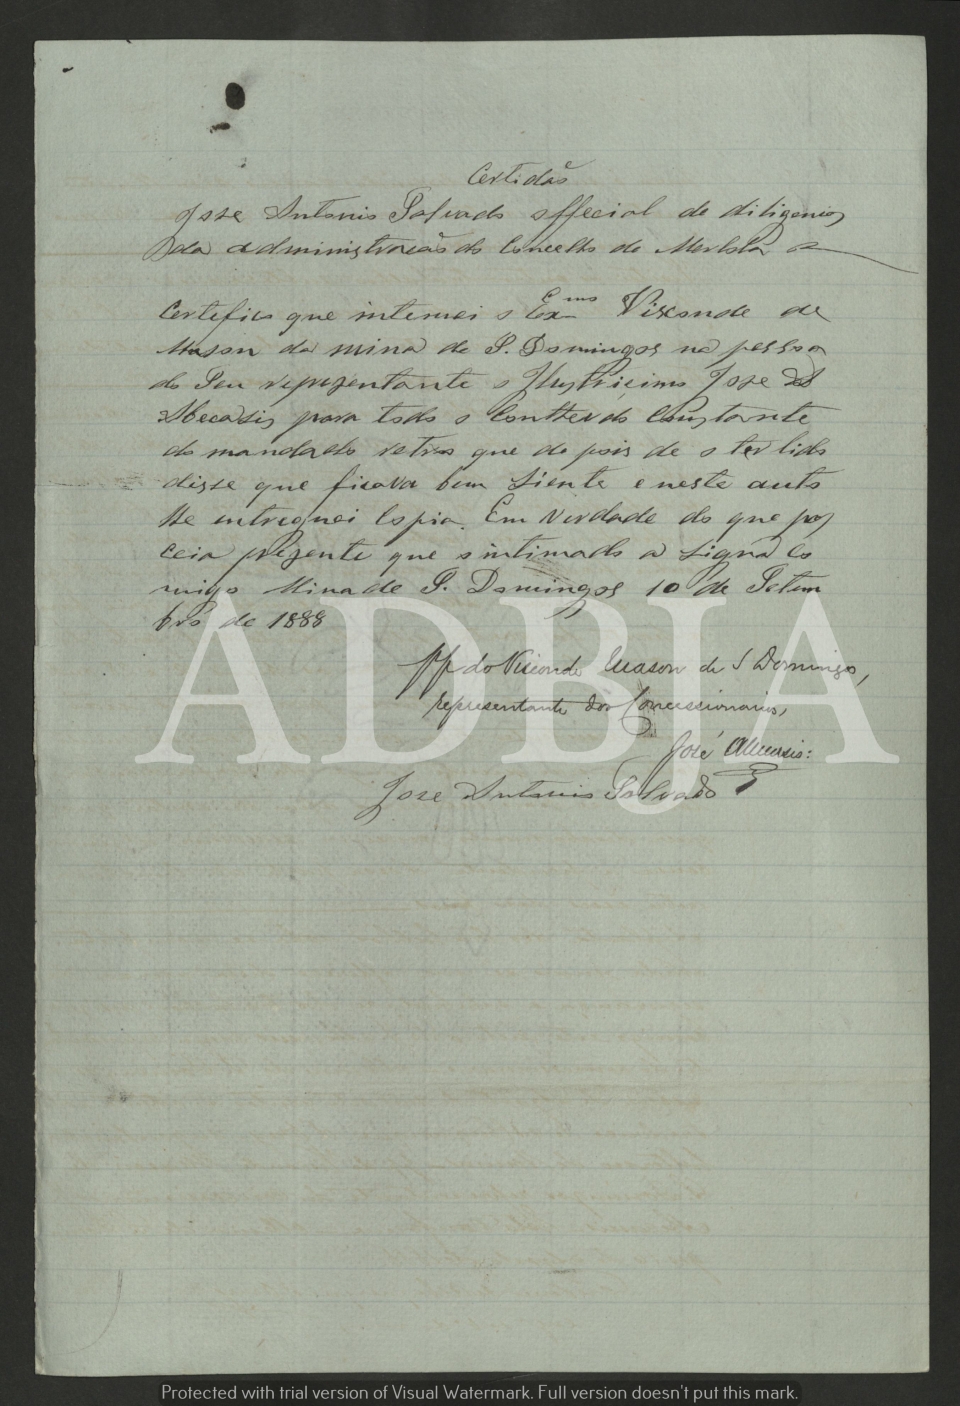 Certidão
Jose Antonio Salvado official de diligencias
da administração do Concelho de Mertola
Certefico que intemei o Exmo Visconde de
Mason da mina de S. Domingos na pessoa
do seu reprezentante o Illustricimo Jose
Abecasis para todo o Contheudo Constante
do mandado retro que depois de o ter lido
disse que ficava bem siente e neste auto
lhe entreguei Copia. Em verdade do que paz
ceia prezente que o intimado a signa Co
migo Mina de S. Domingos 10 de Setem
bro de 1888
pp do Visconde Mason de S Domingos,
representante dos Concessionarios,
José Abecasis:
Jose Antonio Salvado
ADBJA
Protected with trial version of Visual Watermark. Full version doesn't put this mark.